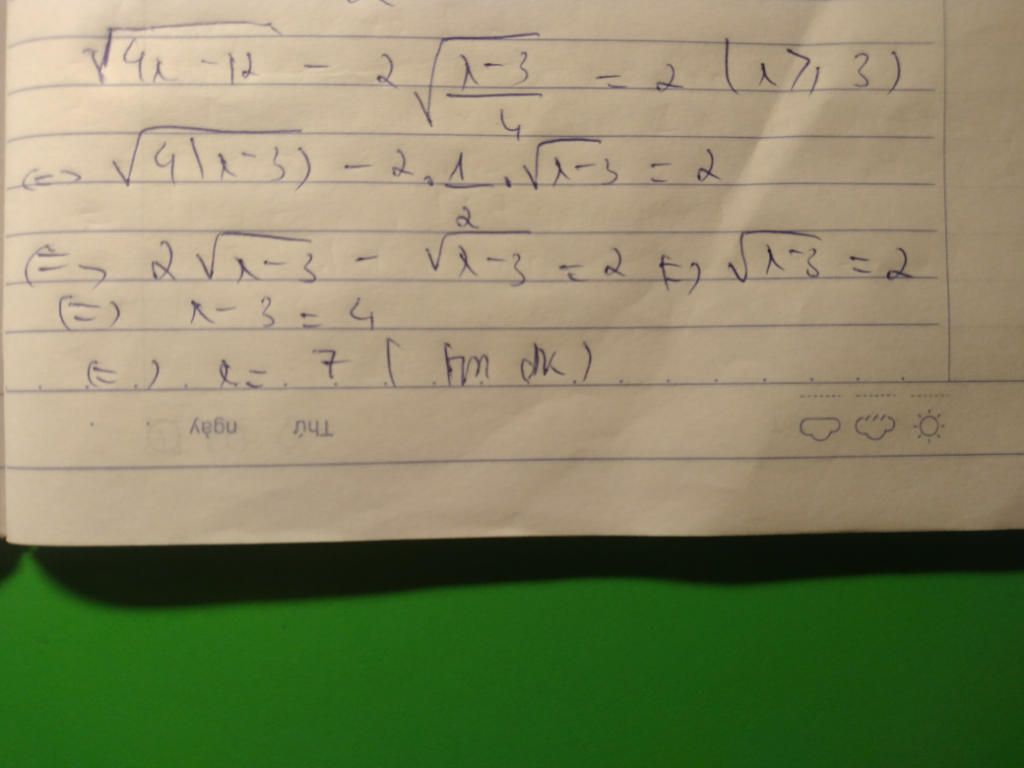 √(4x-12) - 2√((x-3)/4) = 2 (x ≥ 3)
<=> √(4(x-3)) - 2.1/2.√(x-3) = 2
<=> 2√(x-3) - √(x-3) = 2 <=> √(x-3) = 2
<=> x-3 = 4
<=> x = 7 ( đk)
Thứ ngày